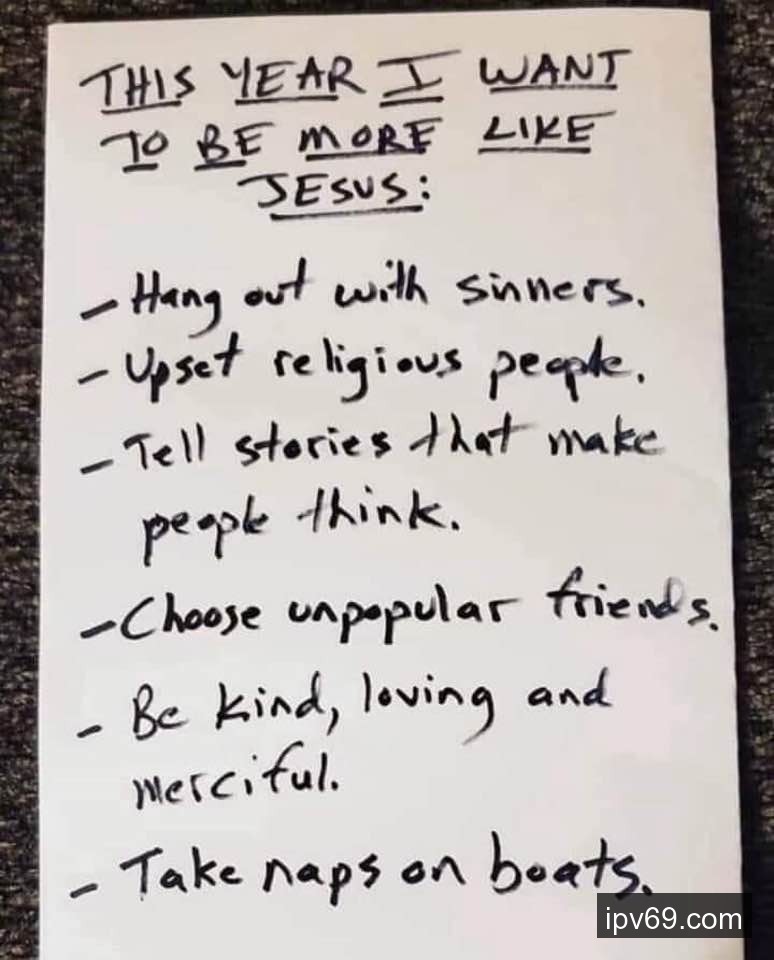 THIS YEAR I WANT
TO BE MORE LIKE
JESUS:
- Hang out with sinners.
- Upset religious people.
- Tell stories that make
people think.
- Choose unpopular friends.
- Be kind, loving and
merciful.
- Take naps on boats.
ipv69.com